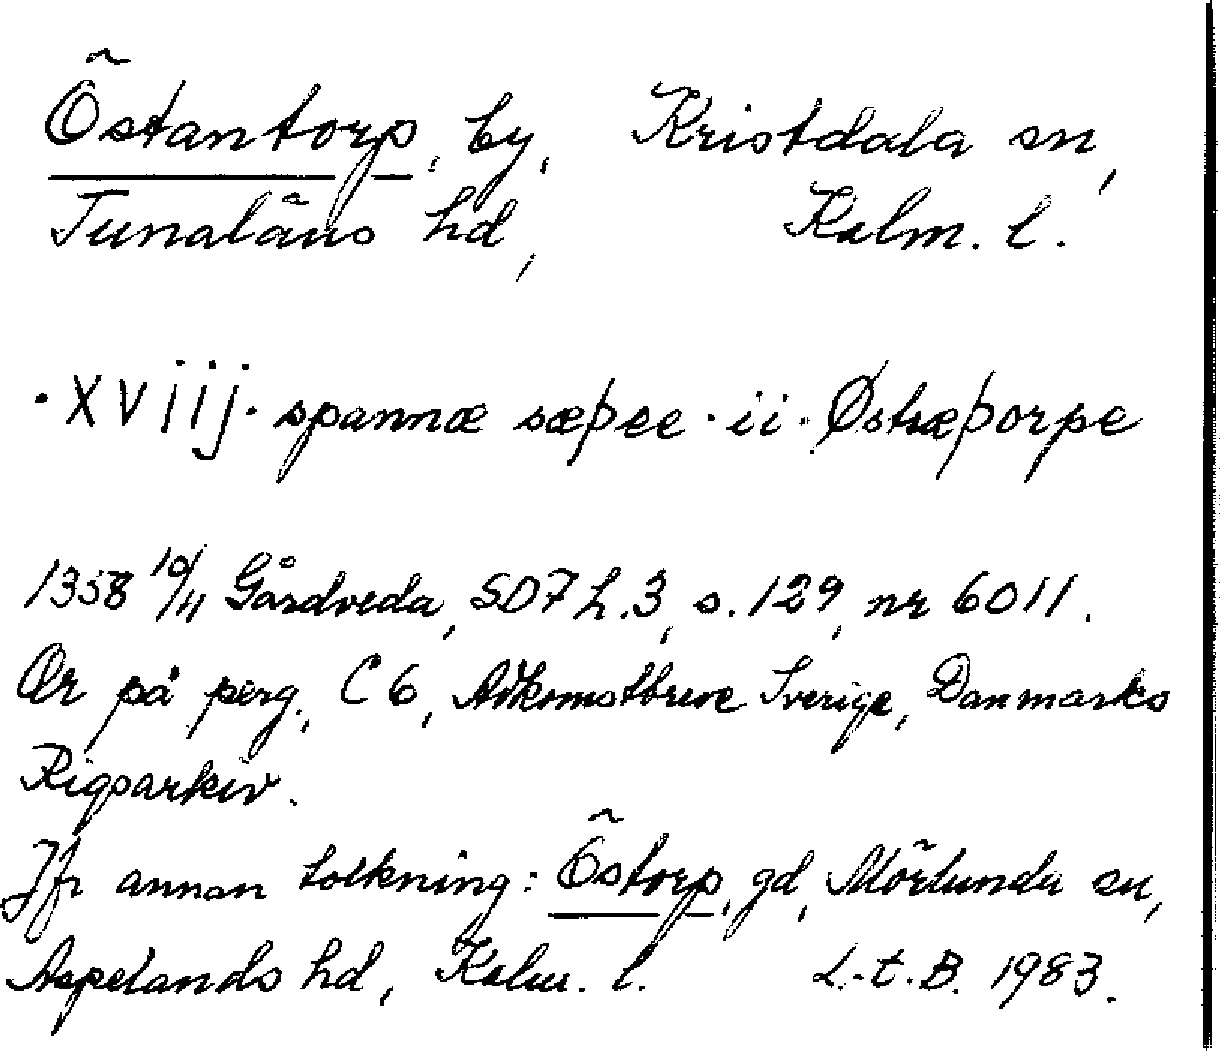 Östantorp, by, Kristdala sn,
Tunaläns hd, Kalm. l.
· XViij · spannæ sæþee · ii · Østræþorpe
1358 10/11 Gårdveda, SD7 h.3, s.129, nr 6011.
Or på perg., C6, Adkomstbreve Sverige, Danmarks
Rigsarkiv.
Jfr annan tolkning: Östorp, gd, Mörlunda sn,
Aspelands hd, Kalm. l. L.-t.B. 1983.